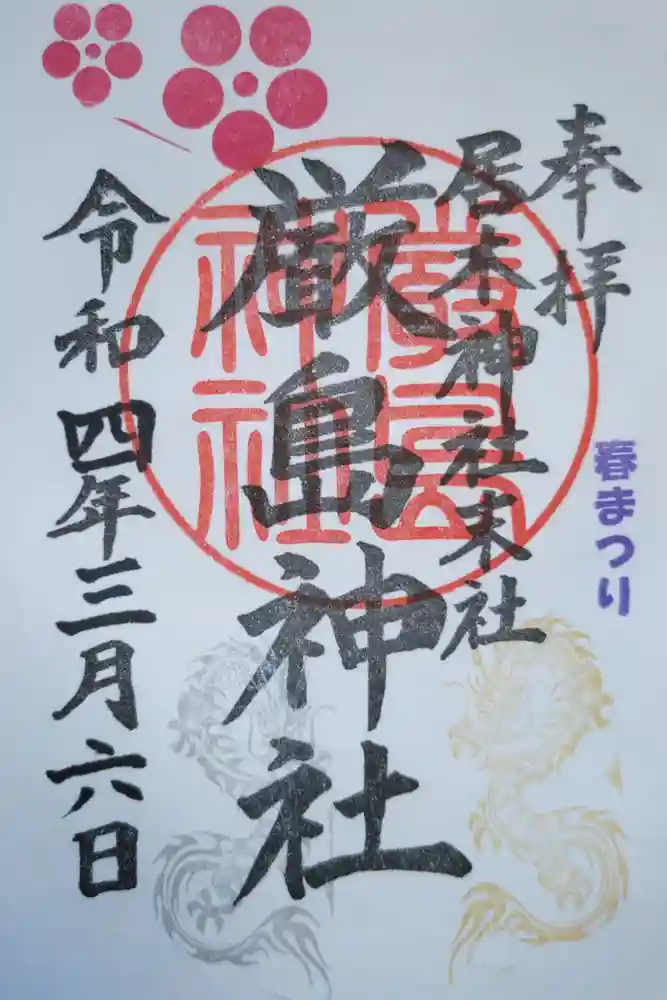 奉拝
居木神社末社
厳島神社
令和四年三月六日
春まつり
嚴島神社